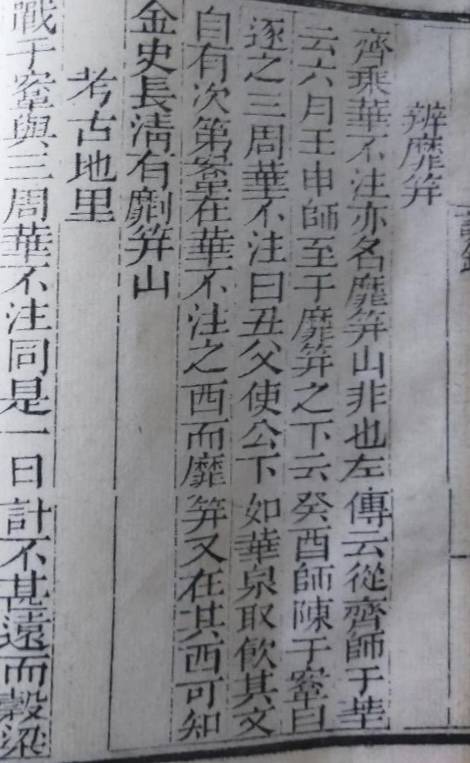 辨靡笄
齊乘華不注亦名靡笄山非也左傳云從齊師于莘
云六月壬申師至于靡笄之下云癸酉師陳于鞌曰
逐之三周華不注曰丑父使公下如華泉取飲其文
自有次第鞌在華不注之西而靡笄又在其西可知
金史長淸有劘笄山
考古地里
戰于鞌與三周華不注同是一日計不甚遠而穀梁